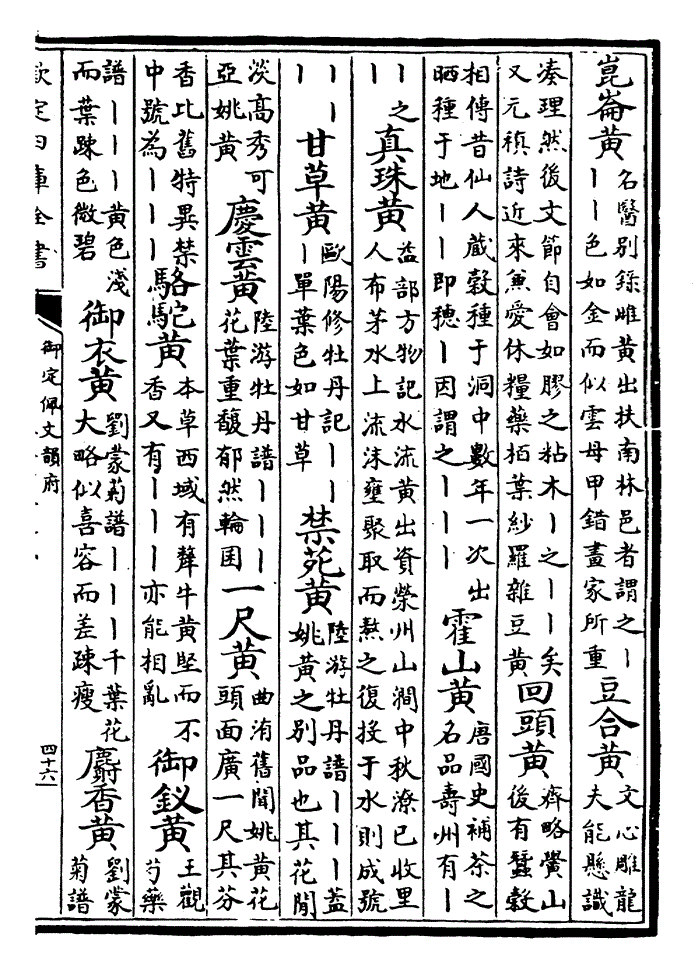 崑崙黄
名醫别錄雌黄出扶南林邑者謂之丨
丨丨色如金而似雲母甲錯畫家所重
豆合黄
文心雕龍
夫能懸識
凑理然後文節自會如膠之粘木丨之丨丨矣
又元稹詩近來兼愛休糧藥栢葉紗羅雜豆黄
回頭黄
齊略黌山
後有蠶榖
相傳昔仙人藏榖種于洞中數年一次出
晒種于地丨丨即穗丨因謂之丨丨丨
霍山黄
唐國史補茶之
名品壽州有丨
丨之
丨
真珠黄
益部方物記水流黄出資榮州山澗中秋潦已收里
人布茅水上流沫壅聚取而熬之復投于水則成號
丨丨
丨
甘草黄
歐陽修牡丹記丨丨
丨單葉色如甘草
禁苑黄
陸游牡丹譜丨丨丨蓋
姚黄之别品也其花閒
淡高秀可
亞姚黄
慶雲黄
陸游牡丹譜丨丨丨
花葉重馥郁然輪囷
一尺黄
曲洧舊聞姚黄花
頭面廣一尺其芬
香比舊特異禁
中號為丨丨丨
駱駝黄
本草西域有犛牛黄堅而不
香又有丨丨丨亦能相亂
御釵黄
王觀
芍藥
譜丨丨丨黄色淺
而葉踈色微碧
御衣黄
劉蒙菊譜丨丨丨千葉花
大略似喜容而差踈瘦
麝香黄
劉蒙
菊譜
欽定四庫全書
御定佩文韻府
四十六